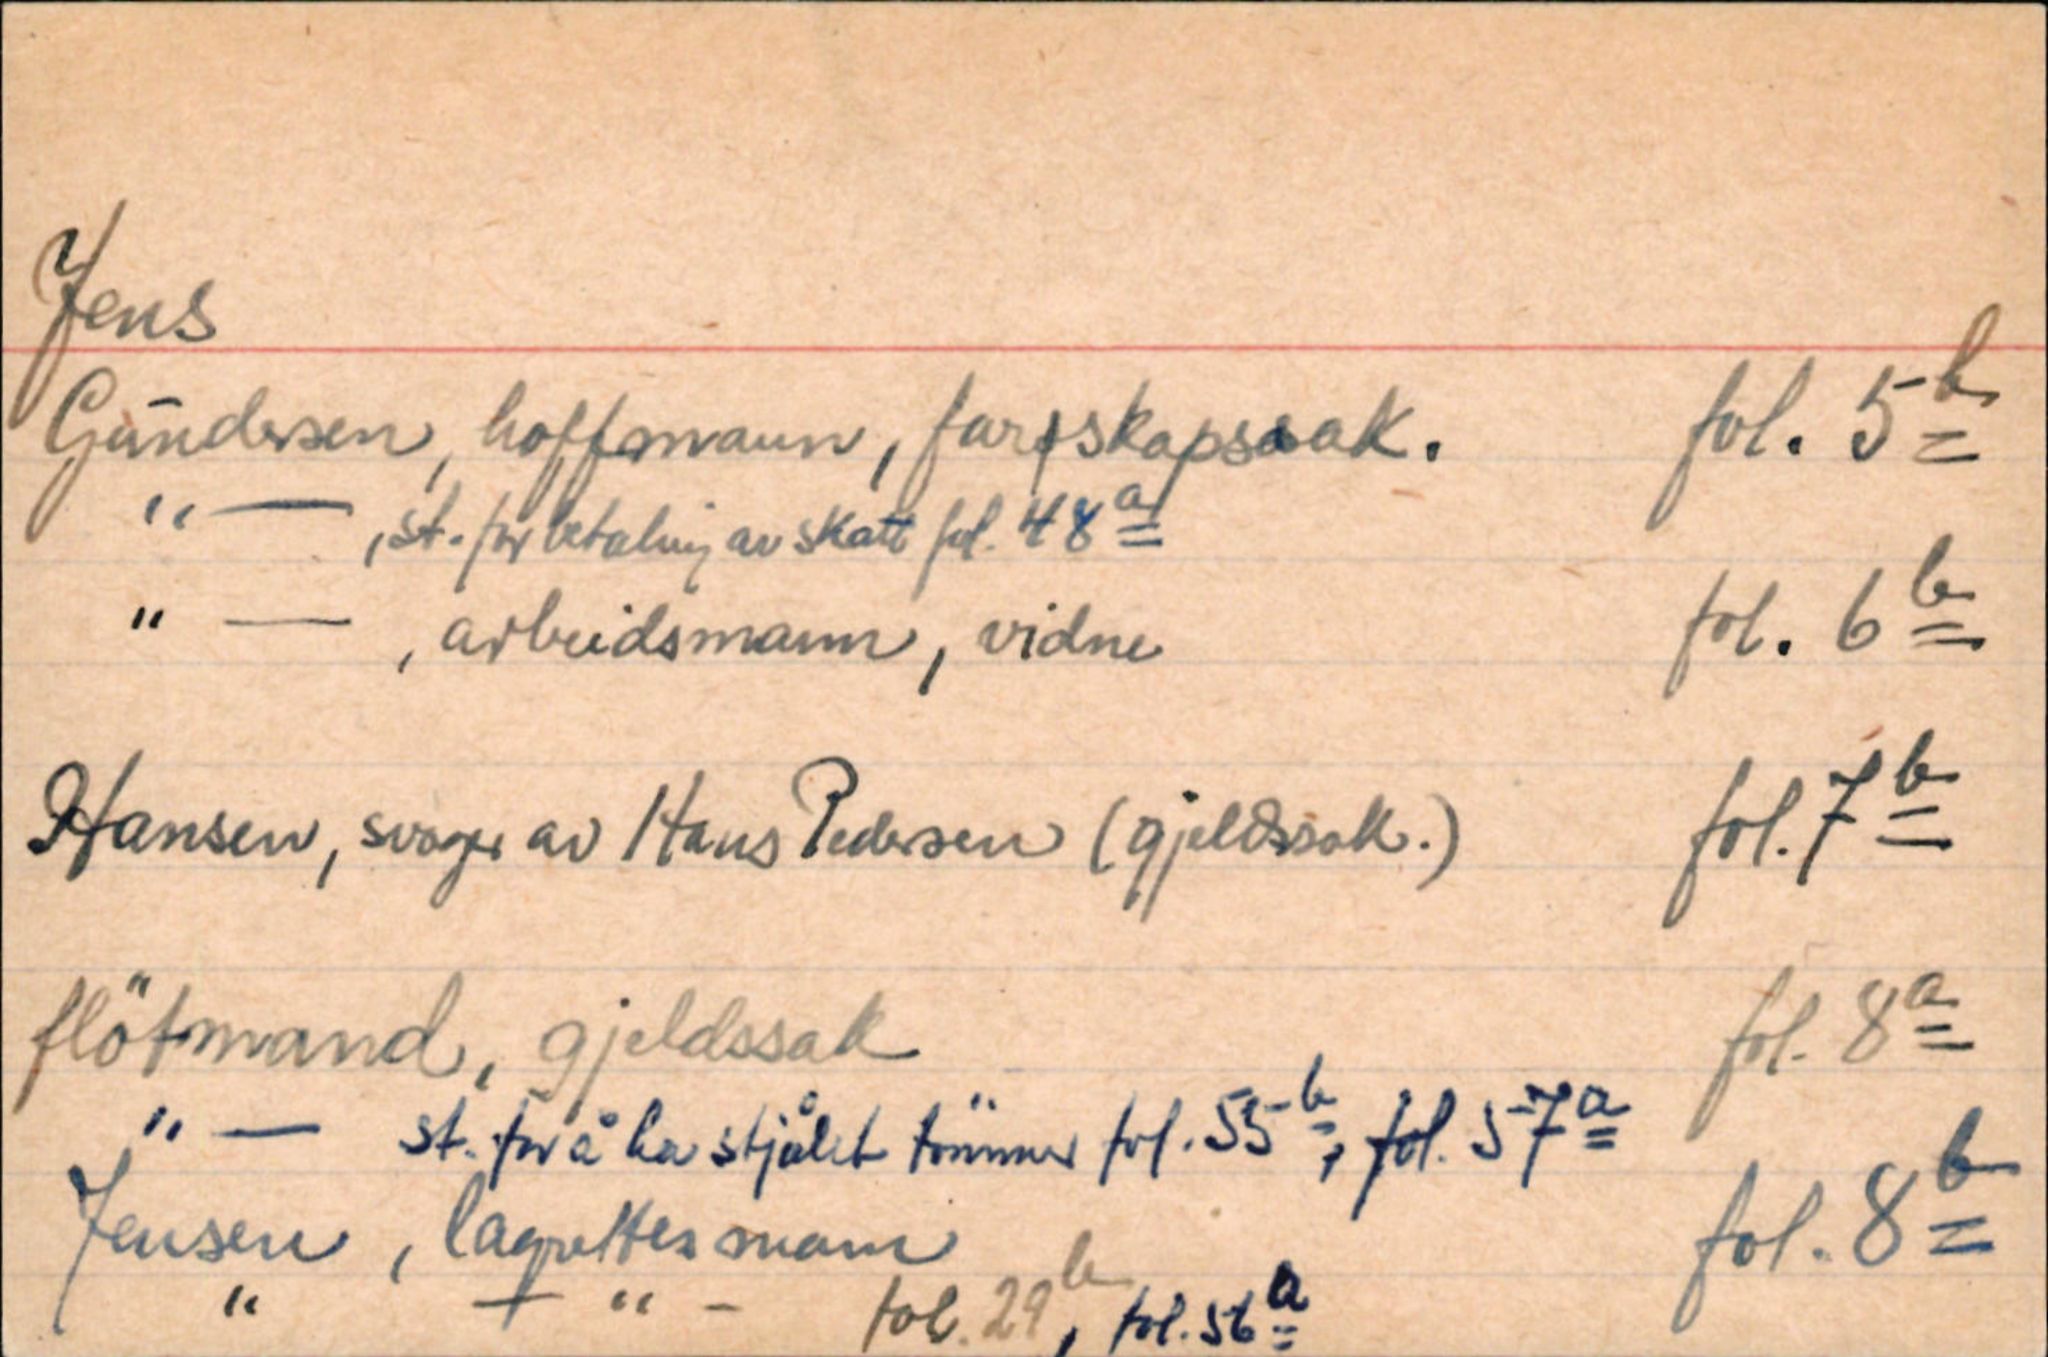 Jens
Gundersen, hoffmann, farsskapssak. fol. 5b
" — , st. for betaling av skatt fol. 48a
" — , arbeidsmann, vidne fol. 6b
Hansen, svoger av Hans Pedersen (gjeldssak.) fol. 7b
flötmand, gjeldssak fol. 8a
" — st. for å ha stjålet tömmer fol. 55b, fol. 57a
Jensen, lagrettesmann fol. 8b
" — " - fol. 29b, fol. 56a